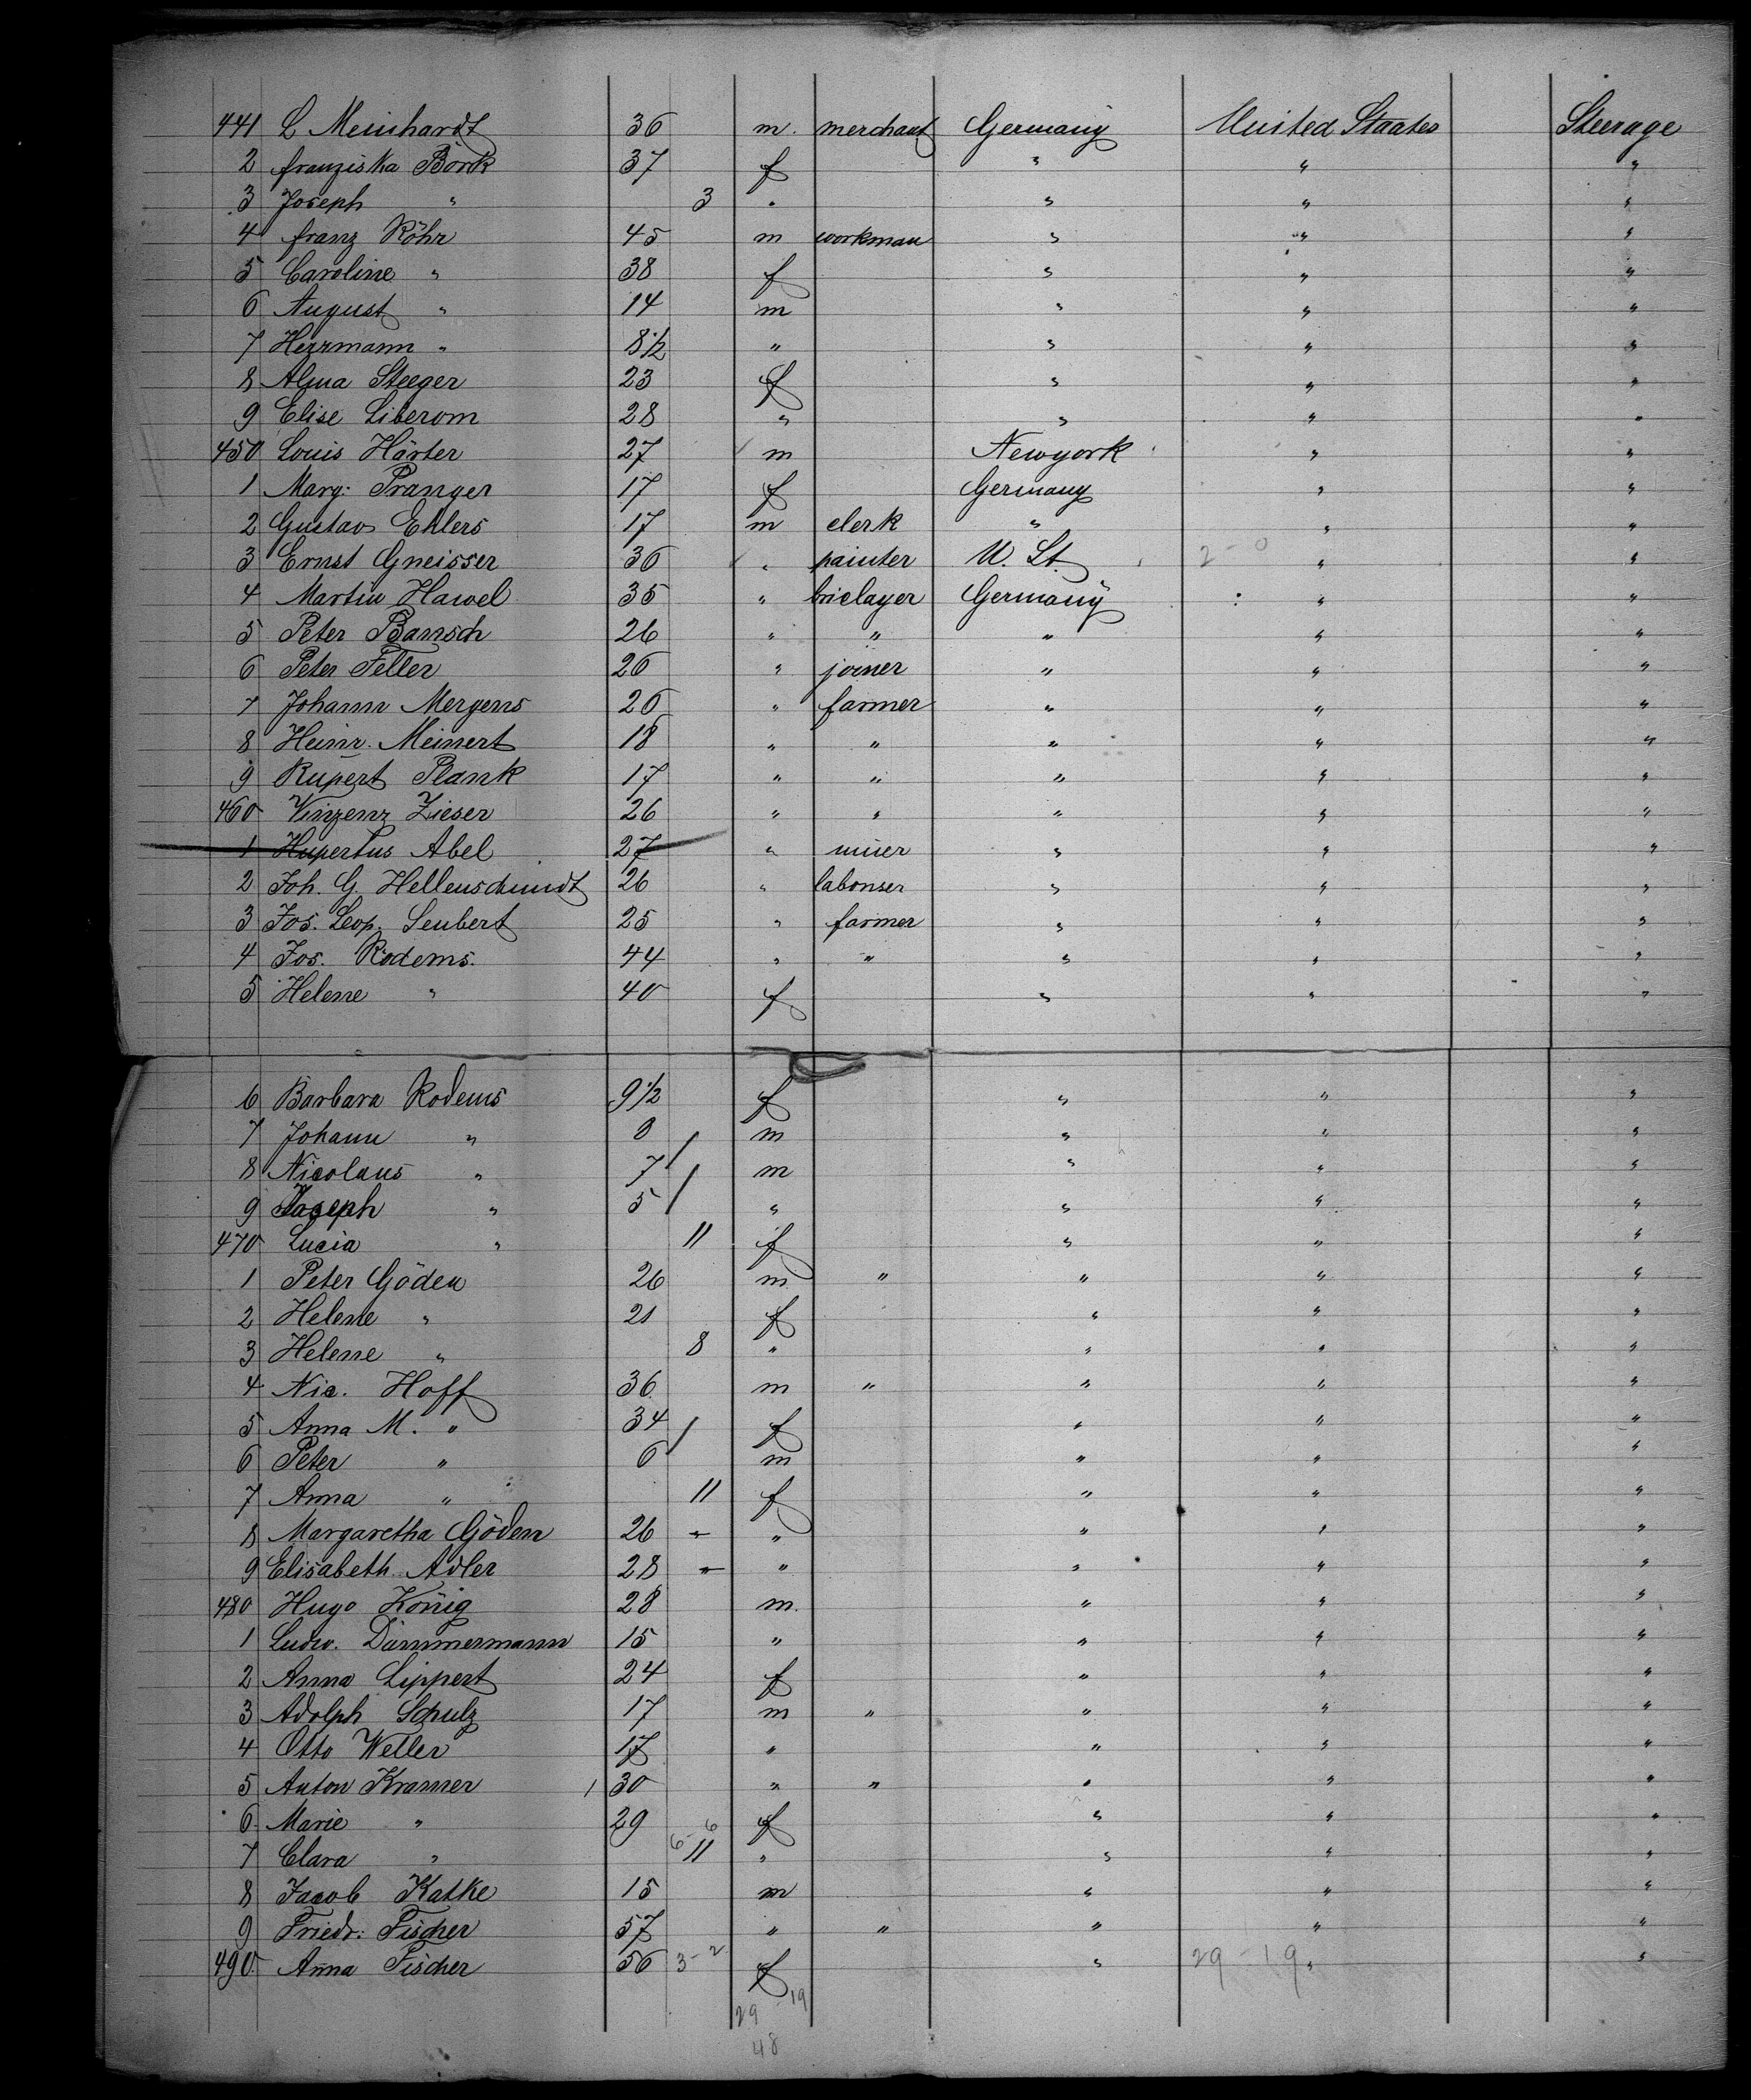 441 L Meinhardt 36 m. merchant Germany United Staates Steerage
2 franziska Börk 37 f " " "
3 Joseph " 3 " " " "
4 franz Röhr 45 m workman " " "
5 Caroline " 38 f " " "
6 August " 14 m " " "
7 Herrmann " 8 1/2 " " " "
8 Alma Steeger 23 f " " "
9 Elise Liberom 28 " " " "
450 Louis Härter 27 m Newyork " "
1 Marg: Pranger 17 f Germany " "
2 Gustav Ehlers 17 m clerk " " "
3 Ernst Gneisser 36 " painter U. St. 2-0 " "
4 Martin Hawel 35 " briclayer Germany " "
5 Peter Bansch 26 " " " " "
6 Peter Feller 26 " joiner " " "
7 Johann Mergens 26 " farmer " " "
8 Heinr. Meinert 18 " " " " "
9 Rupert Plank 17 " " " " "
460 Vinzenz Zieser 26 " " " " "
1 Hupertus Abel 27 " miner " " "
2 Joh. G. Hellenschmidt 26 " labonser " " "
3 Jos. Leop. Seubert 25 " farmer " " "
4 Jos. Rodems. 44 " " " " "
5 Helene " 40 f " " "
6 Barbara Rodems 9 1/2 f " " "
7 Johann " 8 m " " "
8 Nicolaus " 7 m " " "
9 Joseph " 5 " " " "
470 Lucia " 11 f " " "
1 Peter Göden 26 m. " " " "
2 Helene " 21 f " " "
3 Helene " 8 " " " "
4 Nic. Hoff 36 m " " " "
5 Anna M. " 34 f " " "
6 Peter " 6 m " " "
7 Anna " 11 f " " "
8 Margaretha Göden 26 " " " "
9 Elisabeth Adler 28 " " " "
480 Hugo König 28 m. " " "
1 Ludw. Dammermann 15 " " " "
2 Anna Lippert 24 f " " "
3 Adolph Schulz 17 m " " " "
4 Otto Weller 17 " " " "
5 Anton Kramer 30 " " " " "
6 Marie " 29 f " " "
7 Clara " 6-6 11 " " " "
8 Jacob Katke 15 m " " "
9 Friedr: Fischer 57 " " " " "
490. Anna Fischer 56 3-2 f " 29-19 " "
29-19
48